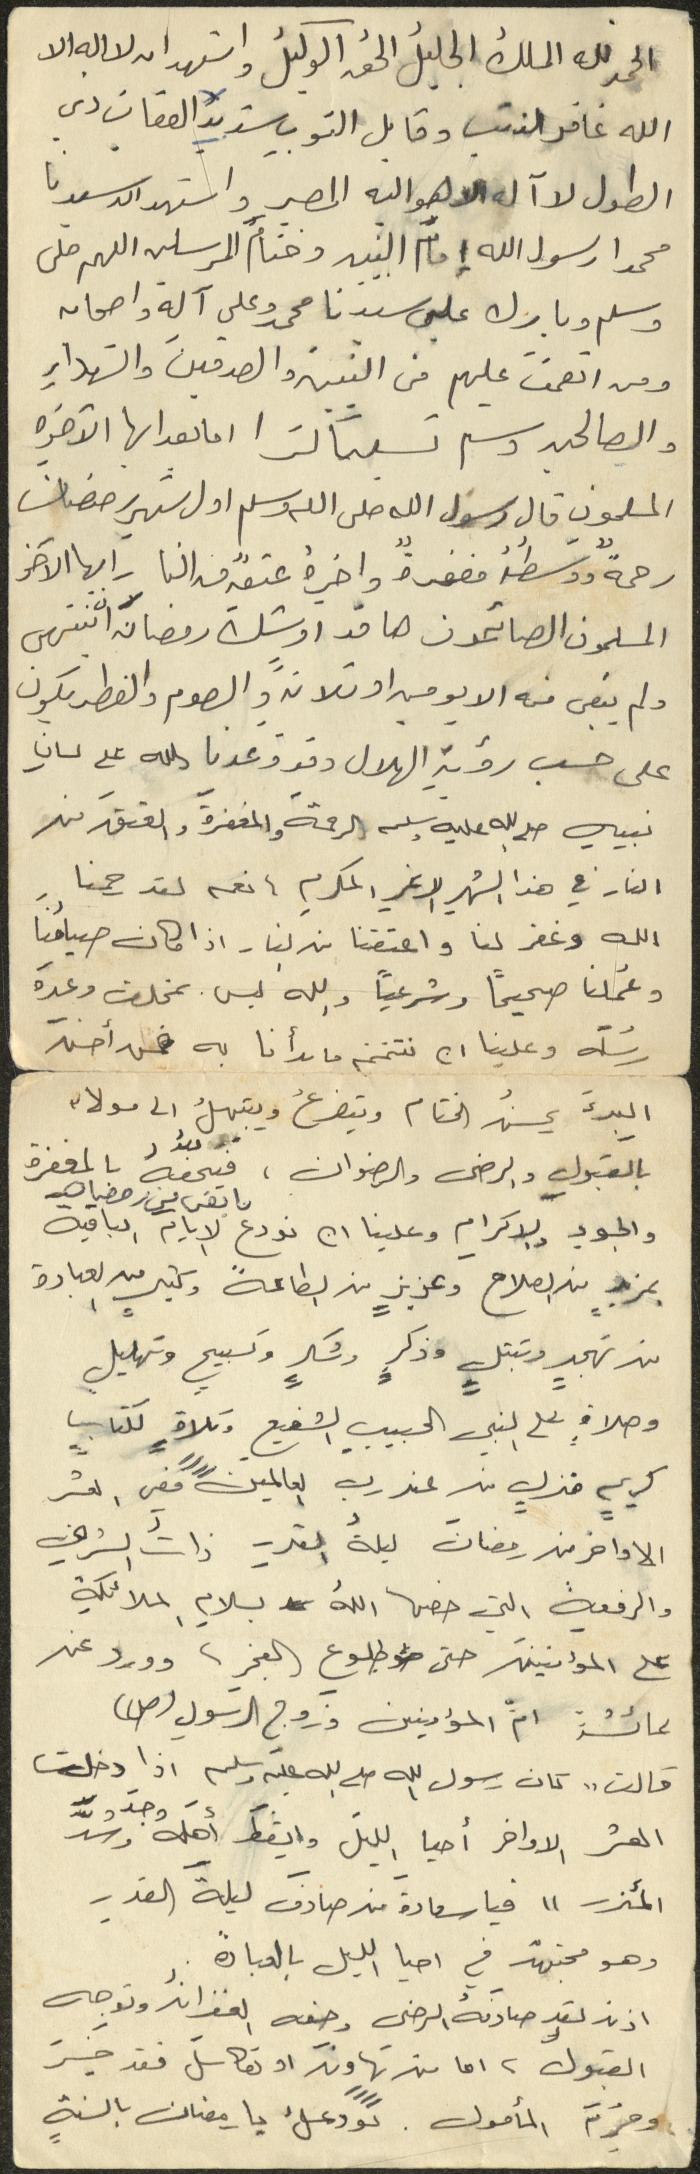 الحمد لله الملك الجليلُ الحق الوكيلُ واشهد ان لا اله الا
الله غافر الذنب وقابل التوب شديدُ العقاب ذي
الطول لا آله الا هو اليه المصير واشهد ان سيدنا
محمدا رسول الله إمامُ النبين وختامُ المرسلين اللهم صلى
وسلم وبارك على سيدنا محمد وعلى آلة واصحابه
ومن انعمت عليهم من النبين والصدقين والشهداء
والصالحين وسلم تسليماً كثرا اما بعد ايها الآخوه
المسلمون قال رسول الله صلى الله وسلم اول شهر رمضان
رحمةٌ ووسطُهُ مغفرةٌ واخيرهُ عتقٌ من النار ايها الآخو
المسلمون الصائمون ها قد اوشك رمضانُ أن ينتهى
ولم يبقى منه الا يومين او ثلاثةً والصوم والفطر يكون
على حسب رؤيةِ الهلال وقد وعدنا الله على لسانِ
نبيهِ صلى الله عليه وسلم الرحمةَ والمغفرةَ والعتقَ من
النار في هذا الشهرِ الاغرِ المكرمِ ، نعم لقد رحمنا
الله وغفر لنا واعتقنا من النار اذا كان صيامُنا
وعملُنا صحيحًا وشرعيًا والله ليس بمخلف وعدهَ
رسُلَه وعلينا ان نتختم ما بدأنا به فمن أحسن
البدءَ يحسنُ الختام ويتضرعُ ويبتهلُ الى مولاه
بالقبولِ والرضى والرضوان ، فيتحفهُ اللهُ بالمغفرة
ما بقى من رمضان
والجودِ والاكرامِ وعلينا ان نودع الايام الباقية
بمزيدٍ من الصلاح وعزيزٍ من الطاعةً وكثيرٍ من العبادة
من تهجدٍ وتبتلٍ وذكرٍ وشكرٍ وتسبيحٍ وتهليلٍ
وصلاةٍ على النبي الحبيبِ الشفيعِ وتلاوةٍ لكتابٍ
كريمٍ منزلٍ من عند رب العالمين ففي العشر
الاواخر من رمضان ليلةُ القدرِ ذاتُ الشرفِ
والرفعةِ التي خصها اللهُ بسلامِ الملائكةِ
على المؤمنين حتى طلوع الفجرِ ، وورد عن
عائشةَ امِّ المؤمنين وزوج الرسولِ (ص)
قالت " كان رسول الله صلى الله عليه وسلم اذا دخلت
العشر الاواخر أحيا الليلَ وايقظَ أهلهُ وجدَّ وشدَّ
المئزر " فيا سعادة من صادفَ ليلةَ القدر
وهو مجتهدٌ في احيا الليل بالعبادة
اذن لقد صادفهُ الرضى وحفه الغفرانُ وتوجه
القبولُ ، اما من تهاونَ او تكاسلَ فقد خسرَ
وحرمَ المأمول . نودعك يا رمضان بالسنةٍ